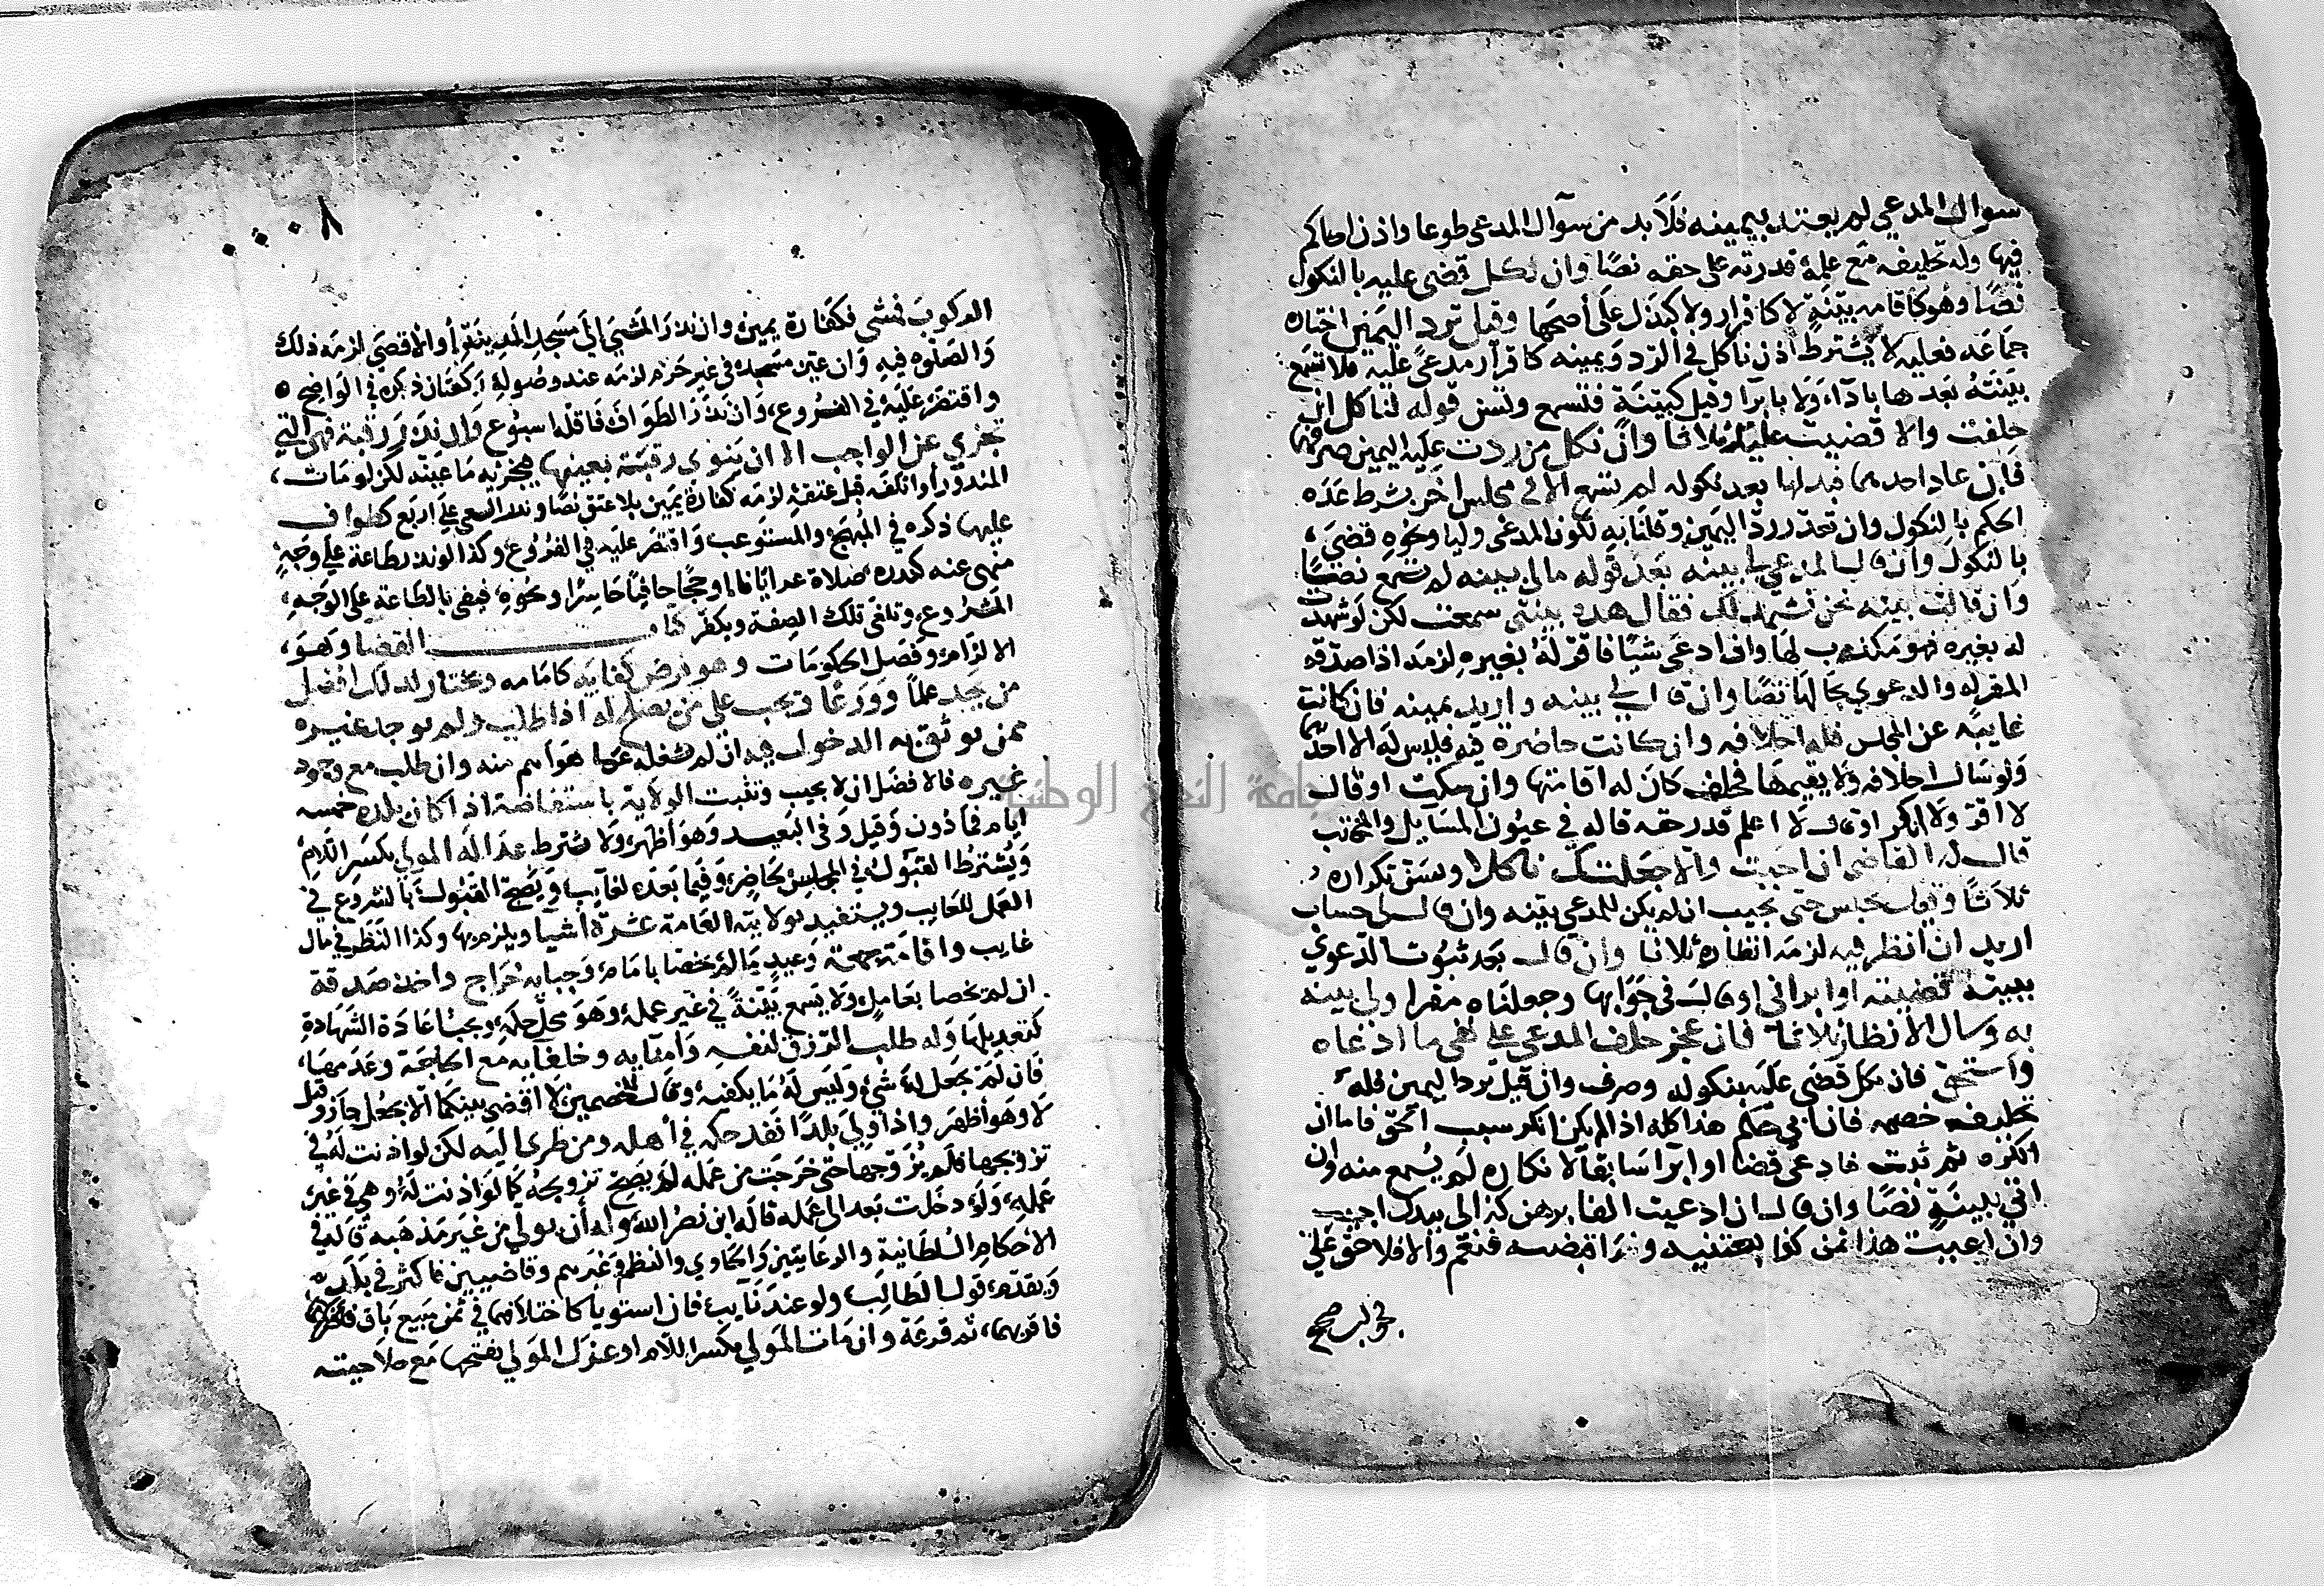 سوال المدعي لم يعتد بيمينه فلا بد من سوآل المدعى طوعا واذن الحاكم
فيها وله تحليفه مع علمه قدرته على حقه نصا وان نكل قضى عليه بالنكول
نصا وهو كاقامه بينة لا كاقرار ولا كبذل على أصحها وقيل ترد اليمين اختاره
جماعه فعليه لا يشترط اذن ناكل في الرد ويمينه كاقرار مدعى عليه فلا تسمع
بينته بعدها بادآء ولا بابرآ وقيل كبينة فتسمع وتسن قوله لناكل ان
حلفت والا قضيت عليك ثلاثا وان نكل من ردت عليه اليمين صرفهما
فان عاد احدهما فبذلها بعد نكوله لم تسمع الا في مجلس اخر بشرط عدم
الحكم بالنكول وان تعذر رد اليمين وقلنا به لكون المدعى وليا ونحوه قضي
بالنكول وان قال المدعي لي بينه بعد قوله مالي بينه لم تسمع نصا
وان قالت بينه نحن نشهد لك فقال هذه بينتي سمعت لكن لو شهدت
له بغيره فهو مكذب لها وان ادعى شيئا فاقر له بغيره لزمه اذا صدقه
المقر له والدعوي بحالها نصا وان قال لي بينه واريد يمينه فان كانت
غايبة عن المجلس فله احلافه وان كانت حاضرة فيه فليس له الا احدهما
ولو سال احلافه ولا يقيمها فحلف كان له اقامتها وان سكت او قال
لا اقر ولا انكر او قال لا اعلم قدر حقه قاله في عيون المسايل والمنتخب
قال له القاضي ان اجبت والا جعلتك ناكلا ويسن تكراره
ثلاثا وقيل يحبس حتى يجيب ان لم يكن للمدعي بينه وان قال لي حساب
اريد ان انظر فيه لزمه انظاره ثلاثا وان قال بعد ثبوت الدعوي
ببينة قضيته او ابراني او قال في جوابها وجعلناه مقرا ولي بينه
به وسال الانظار ثلاثا فان عجز حلف المدعي على نفي ما ادعاه
واستحق فان نكل قضى عليه بنكوله وصرف وان قيل ترد اليمين فله
تحليف خصمه فان ابي حكم هذا كله اذا لم يكن انكر سبب الحق فاما ان
انكره ثم ثبت فادعى قضا او ابرآ سابقا لانكاره لم يسمع منه وان
اتي ببينة نصا وان قال ان ادعيت الفا برهن كذا لي بيدك اجبت
وان ادعيت هذا ثمن كذا بعتنيه ولم اقبضه فنعم والا فلا حق علي
الركوب فمشي فكفارة يمين وان نذر المشي الى مسجد المدينة أو الأقصى لزمه ذلك
والصلوه فيه وان عين مسجدا في غير حرم لزمه عند وصوله ركعتان ذكره في الواضح
واقتصر عليه في الفروع، وان نذر الطواف فاقله اسبوع وان نذر رقبة فهي التي
تجزي عن الواجب الا ان ينوي رقبة بعينها فيجزيه ما عينه لكن لو مات،
المنذور أو اتلفه قبل عتقه لزمه كفارة يمين بلا عتق نصا ونذر السعي على اربع كطواف
عليها ذكره في المبهج والمستوعب واقتصر عليه في الفروع، وكذا لو نذر طاعة على وجه
منهي عنه كنذره صلاة عريانا او حجا حافيا حاسرا ونحوه فيفي بالطاعة على الوجه،
المشروع، وتلغى تلك الصفة ويكفر كتاب القضا وهو،
الالزام، وفصل الحكومات وهو فرض كفايه كامامه ويختار لذلك افضل
من يجد علما وورعا ويجب على من يصلح له اذا طلب ولم يوجد غيره
ممن يوثق به الدخول فيه ان لم يشغله عما هو اهم منه وان طلب مع وجود
غيره فالافضل ان لا يجيب وتثبت الولاية باستفاضة اذا كان بلده خمسه
ايام فما دون وقيل وفي البعيد وهو اظهر، ولا يشترط عدالة المولي بكسر اللام
ويشترط القبول في المجلس لحاضر، وفيما بعده لغايب ويصح القبول بالشروع في
العمل للغايب ويستفيد بولايته العامة عشرة اشيا ويلزم بها وكذا النظر في مال
غايب واقامة جمعة وعيد ما لم يخصا بامام وجباية خراج واخذ صدقة
ان لم تخصا بعامل ولا يسمع بينة في غير عمله وهو محل حكمه، ويجب اعادة الشهادة
كتعديلها وله طلب الرزق لنفسه وامنايه وخلفايه مع الحاجة وعدمها،
فان لم يجعل له شيء وليس له ما يكفيه، وقال للخصمين لا اقضي بينكما الا بجعل جاز وقيل
لا وهو أظهر واذا ولي بلدا نفذ حكمه في أهله ومن طرى اليه لكن لو اذنت له في
تزويجها فلم يزوجها حتى خرجت من عمله لم يصح تزويجه كما لو اذنت له وهي في غير
عمله، ولو دخلت بعد الى عمله قاله ابن نصر الله، وله أن يولي من غير مذهبه قاله في
الاحكام السلطانية والرعايتين والحاوي والنظم وغيرهم وقاضيين فاكثر في بلد
ويقدم، قول الطالب ولو عند نايب فان استويا كاختلافهما في ثمن مبيع باق
فاقربهما، ثم قرعة وان مات المولي بكسر اللام او عزل المولي بفتحها مع صلاحيته